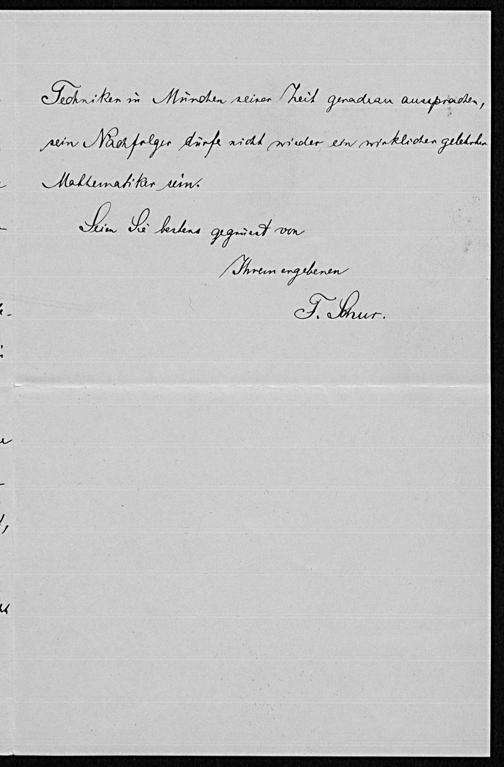 Techniker in München seiner Zeit geradezu aussprachen,
sein Nachfolger dürfe nicht wieder ein wirklicher gelehrter
Mathematiker sein.
Seien Sie bestens gegrüsst von
Ihrem ergebenen
F. Schur.